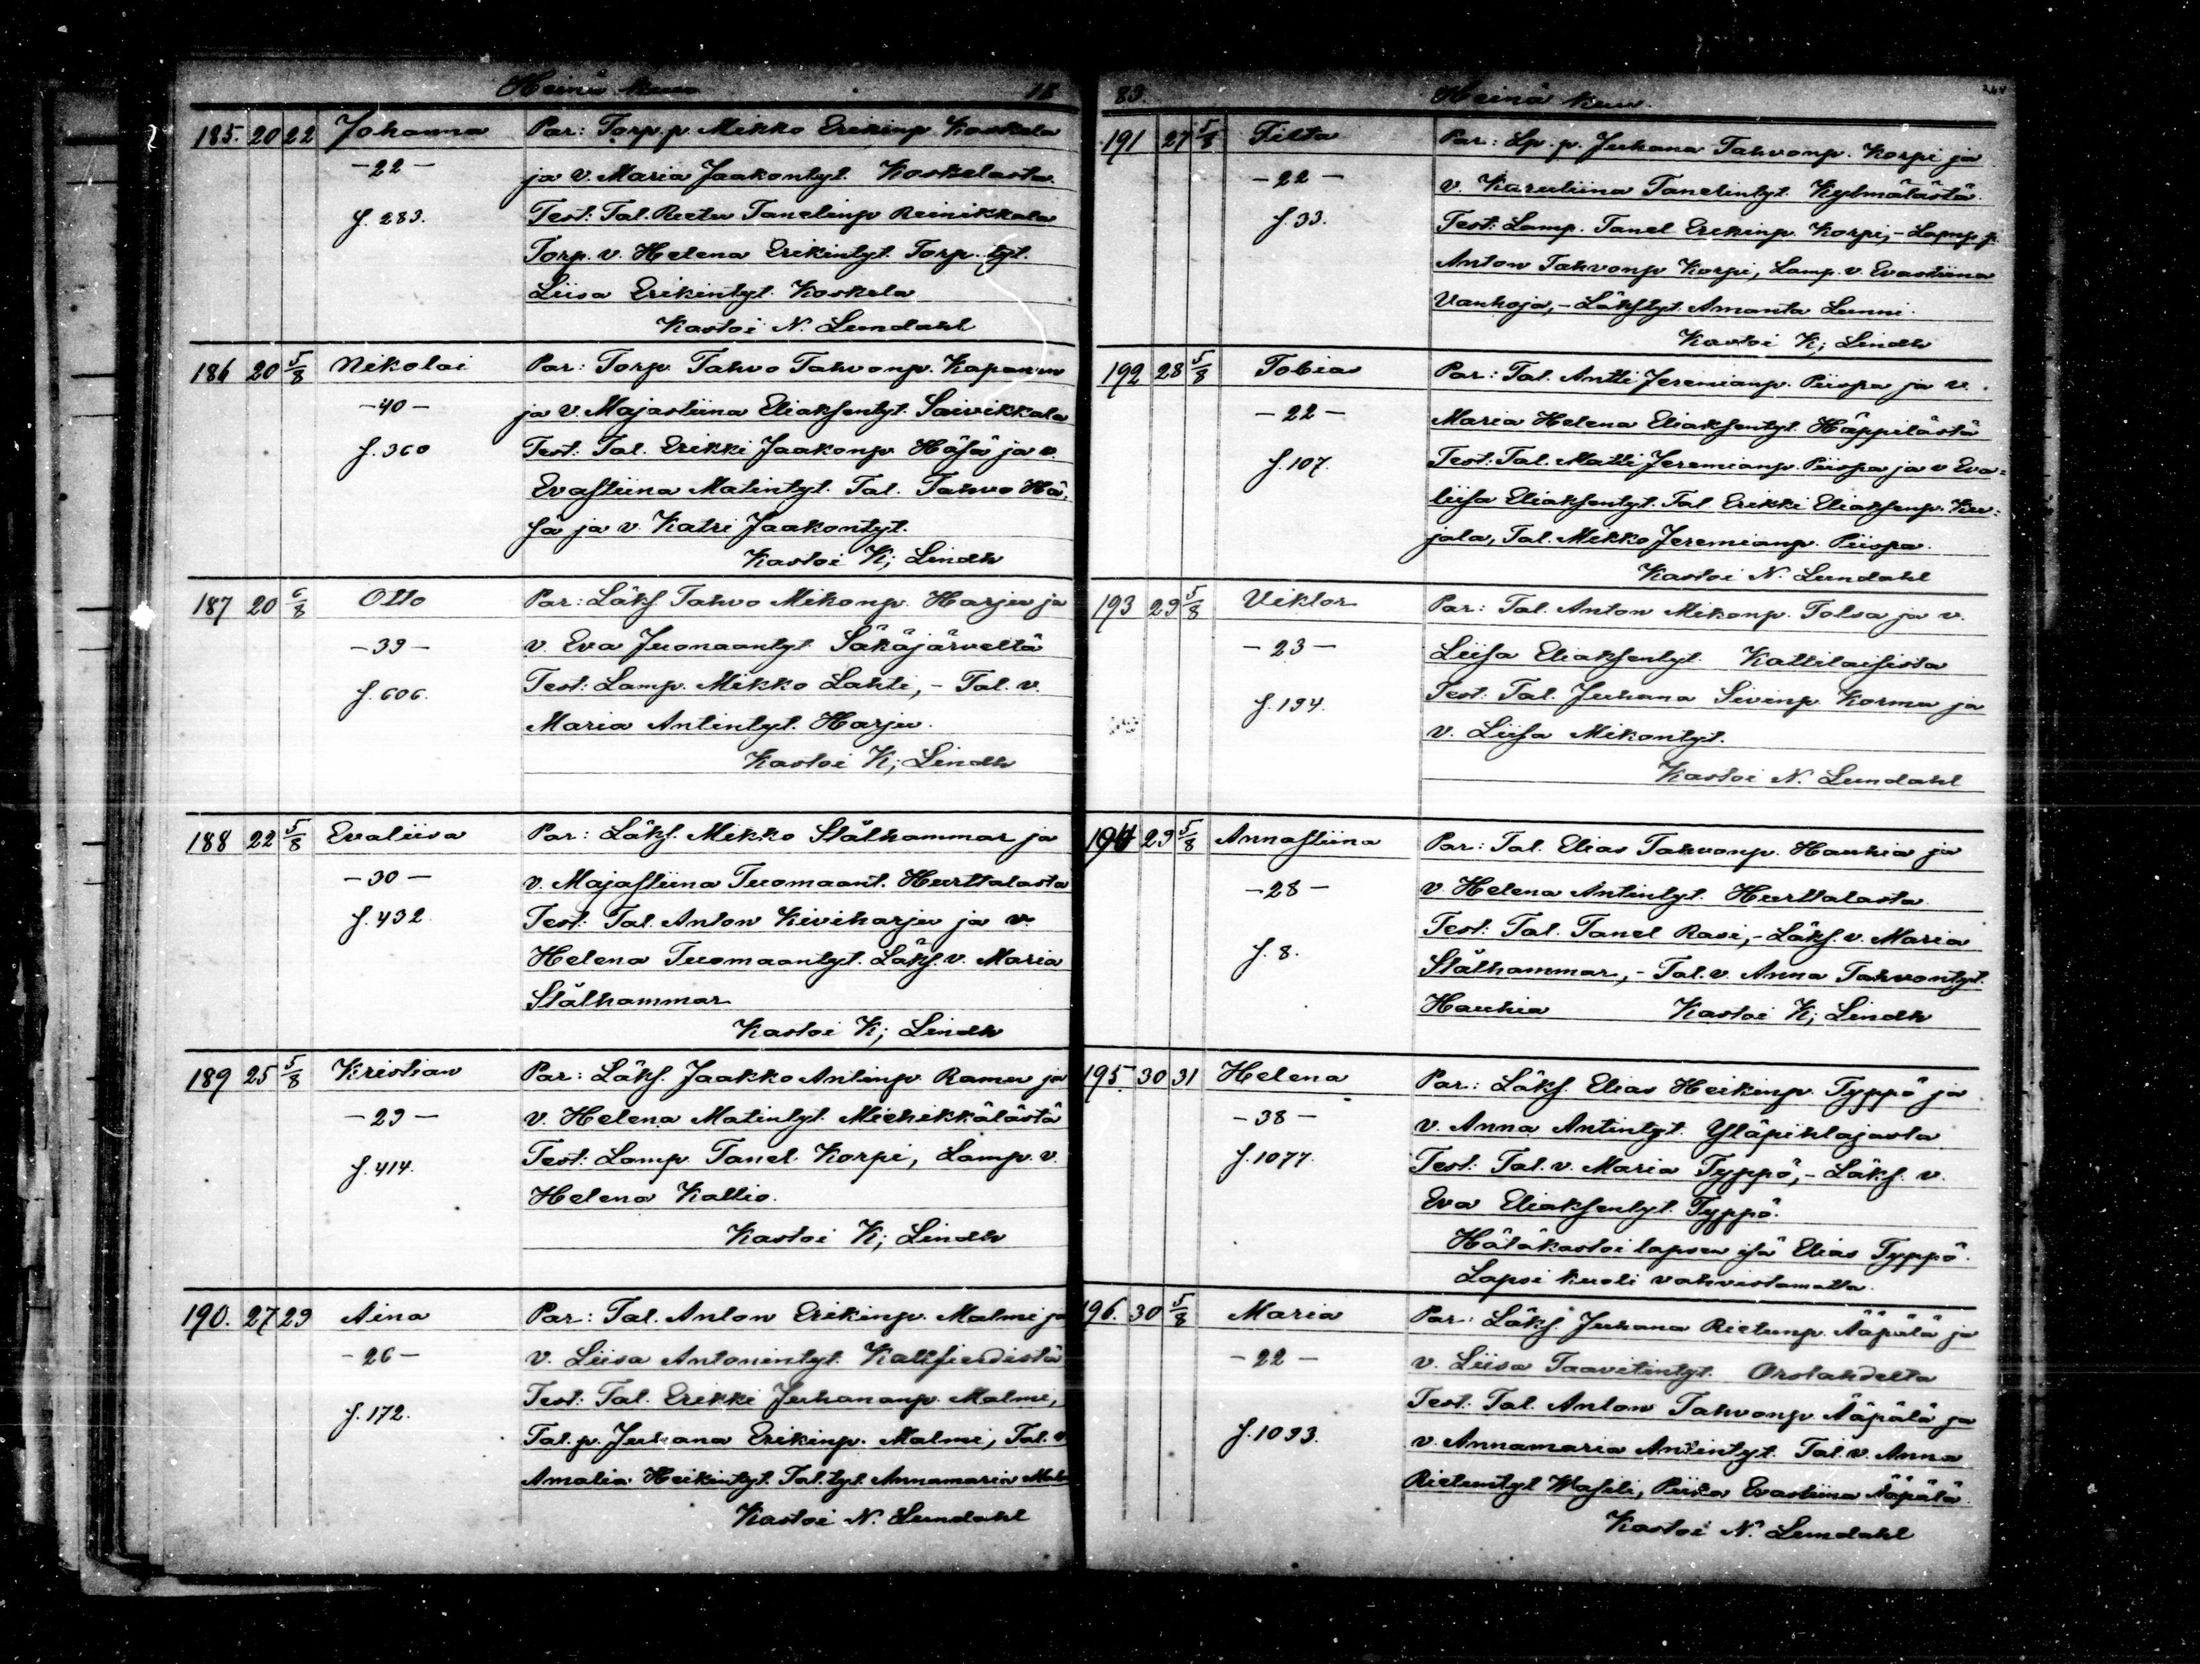 Heinä kuu 18
185. 20 22 Johanna Par: Torp. p. Mikko Erikinp. Koskela
-22- ja v. Maria Jaakontyt. Koskelasta.
f. 283. Test: Tal. Reetu Tanelinp. Reinikkala
Torp. v. Helena Erikintyt. Torp. tyt.
Liisa Erikintyt. Koskela
Kastoi N. Lundahl
186 20 5/8 Nikolai Par: Torp. Tahvo Tahvonp. Kapanen
-40- ja v. Majastiina Eliaksentyt. Saivikkala
f. 360 Test: Tal. Erikki Jaakonp. Häsä ja v.
Evastiina Matintyt. Tal. Tahvo Hä-
sä ja v. Katri Jaakontyt.
Kastoi K; Lindh
187 20 6/8 Otto Par: Läks. Tahvo Mikonp. Harju ja
-39- v. Eva Juonaantyt. Säkäjärveltä
f. 606. Test: Lamp. Mikko Lahti, - Tal. v.
Maria Antintyt. Harju.
Kastoi K; Lindh
188 22 5/8 Evaliisa Par: Läks. Mikko Stålhammar ja
-30- v. Majastiina Tuomaant. Hurttalasta
f. 432 Test: Tal. Anton Kiviharju ja v.
Helena Tuomaantyt. Läks. v. Maria
Stålhammar
Kastoi K; Lindh
189 25 5/8 Kristian Par: Läks. Jaakko Antinp. Ramu ja
-29- v. Helena Matintyt. Miehikkälästä
f. 414. Test: Lamp. Tanel Korpi, Lamp. v.
Helena Kallio.
Kastoi K; Lindh
190. 27 29 Aina Par: Tal. Anton Erikinp. Malmi ja
-26- v. Liisa Antonintyt.
f. 172. Test: Tal. Erikki Juhananp. Malmi,
Tal. p. Juhana Erikinp. Malmi, Tal. v.
Amalia Heikintyt. Tal. tyt. Annamaria
Kastoi N. Lundahl
83. Heinä kuu.
191 27 5/8 Tilta Par: Lp. p. Juhana Tahvonp. Korpi ja
-22- v. Karuliina Tanelintyt. Kylmälästä.
f. 33. Test: Lamp. Tanel Erikinp. Korpi, - Lamp. p.
Anton Tahvonp. Korpi, Lamp. v. Evastiina
Vanhoja, - Läks. tyt. Amanta Lunni.
Kastoi K; Lindh
192 28 5/8 Tobias Par: Tal. Antti Jeremianp. Piispa ja v.
-22- Maria Helena Eliaksentyt. Häppilästä
f. 107. Test: Tal. Matti Jeremianp. Piispa ja v Eva=
liisa Eliaksentyt. Tal. Erikki Eliaksenp. Ku=
jala, Tal. Mikko Jeremianp. Piispa.
Kastoi N. Lundahl
193 29 5/8 Viktor Par: Tal. Anton Mikonp. Tolsa ja v.
-23- Liisa Eliaksentyt. Kattilaisista
f. 194. Test: Tal. Juhana Sivinp. Kormu ja
v. Liisa Mikontyt.
Kastoi N. Lundahl
194 29 5/8 Annastiina Par: Tal. Elias Tahvonp. Hauhia ja
-28- v. Helena Antintyt. Hurttalasta.
f. 8. Test: Tal. Tanel Rasi, - Läks. v. Maria
Stålhammar, - Tal. v. Anna Tahvontyt.
Hauhia Kastoi K; Lindh
195. 30 31 Helena Par: Läks. Elias Heikinp. Typpö ja
-38- v. Anna Antintyt. Yläpihlajasta
f. 1077. Test: Tal. v. Maria Typpö, - Läks. v.
Eva Eliaksentyt. Typpö.
Hätäkastoi lapsen isä Elias Typpö.
Lapsi kuoli vahvistamatta.
196. 30 5/8 Maria Par: Läks. Juhana Rietunp. Ääpälä ja
-22- v. Liisa Taavitintyt. Orslahdelta
f. 1093. Test: Tal. Anton Tahvonp. Ääpälä ja
v. Annamaria Antintyt. Tal. v. Anna
Rietuntyt Wasili, Piika Evastiina Ääpälä.
Kastoi N. Lundahl